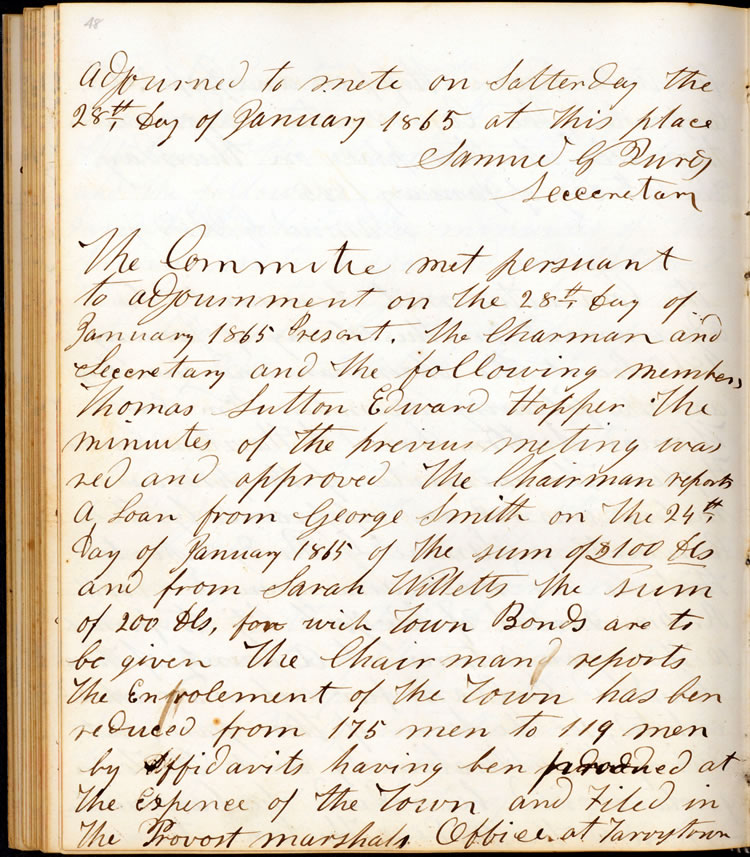 48
adjourned to mete on Satterday the
28th, Day of January 1865 at this place
Samuel G Purdy
Seccretary
The Commitie met persuant
to adjournment on the 28th, Day of
January 1865 Present. the Charman and
Seccretary and the following members
Thomas Sutton Edward Hopper The
minuites of the previus meting was
red and approved The Chairman reports
a Loan from George Smith on the 24th,
Day of January 1865 of the sum of $100 Dls
and from Sarah Willetts the sum
of 200 Dls, for wich Town Bonds are to
be given The Chairman reports
the Enrolement of the Town has ben
reduced from 175 men to 119 men
by Affidavits having ben produced at
the Expence of the Town and Filed in
the Provost marshals Office at Tarrytown